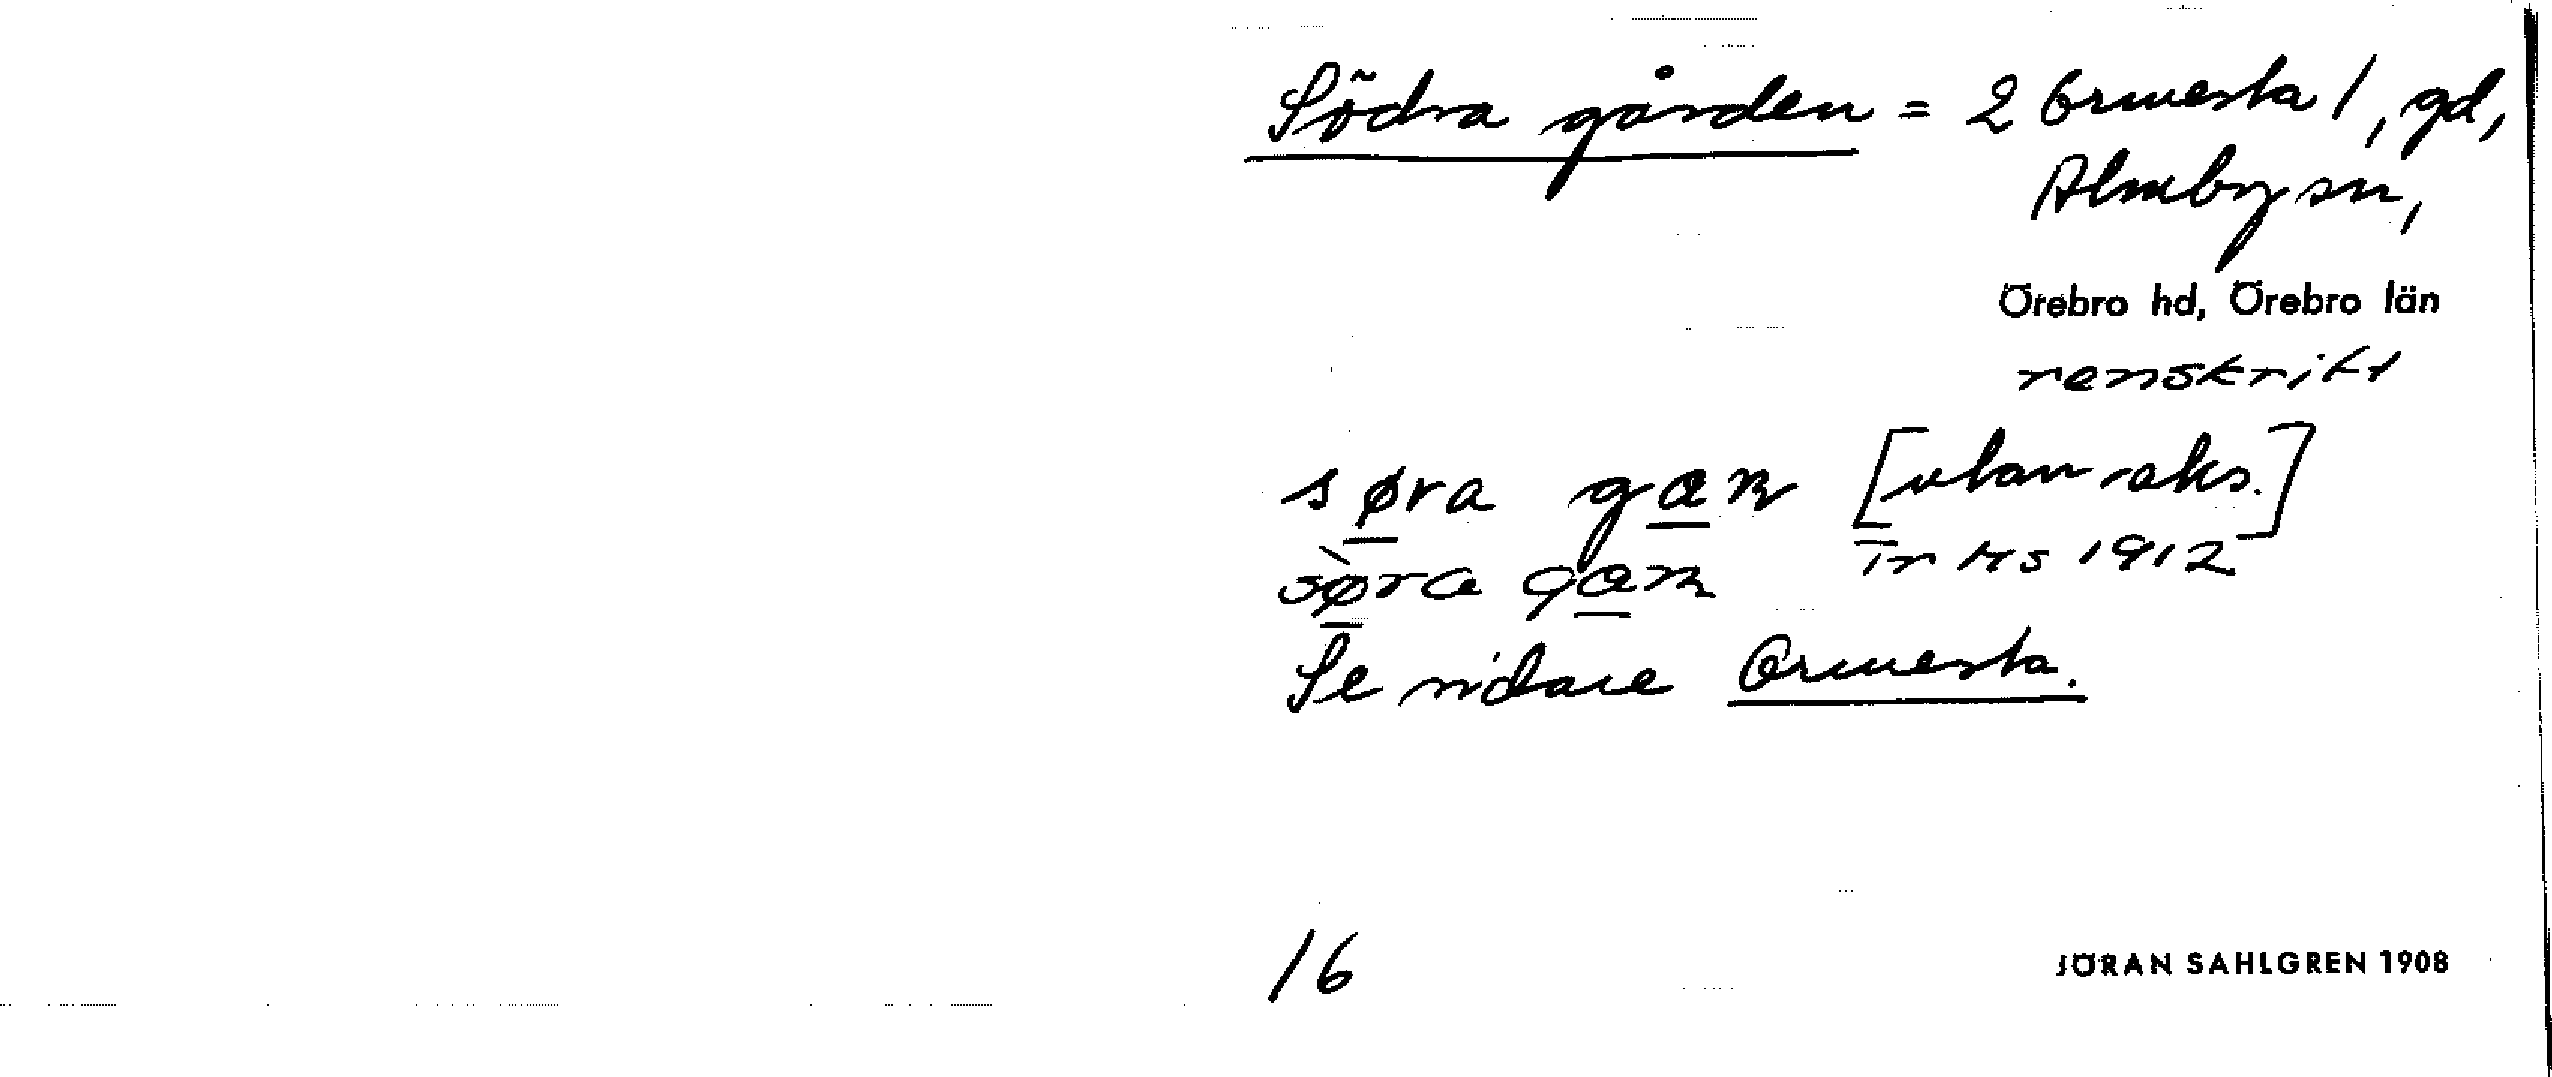 Södra gården = 2 Ormesta 1, gd,
Almby sn,
Örebro hd, Örebro län
renskrift
søra gαn [utan aks.]
sø̀ra gαn Tr Hs 1912
Se vidare Ormesta.
16
JÖRAN SAHLGREN 1908